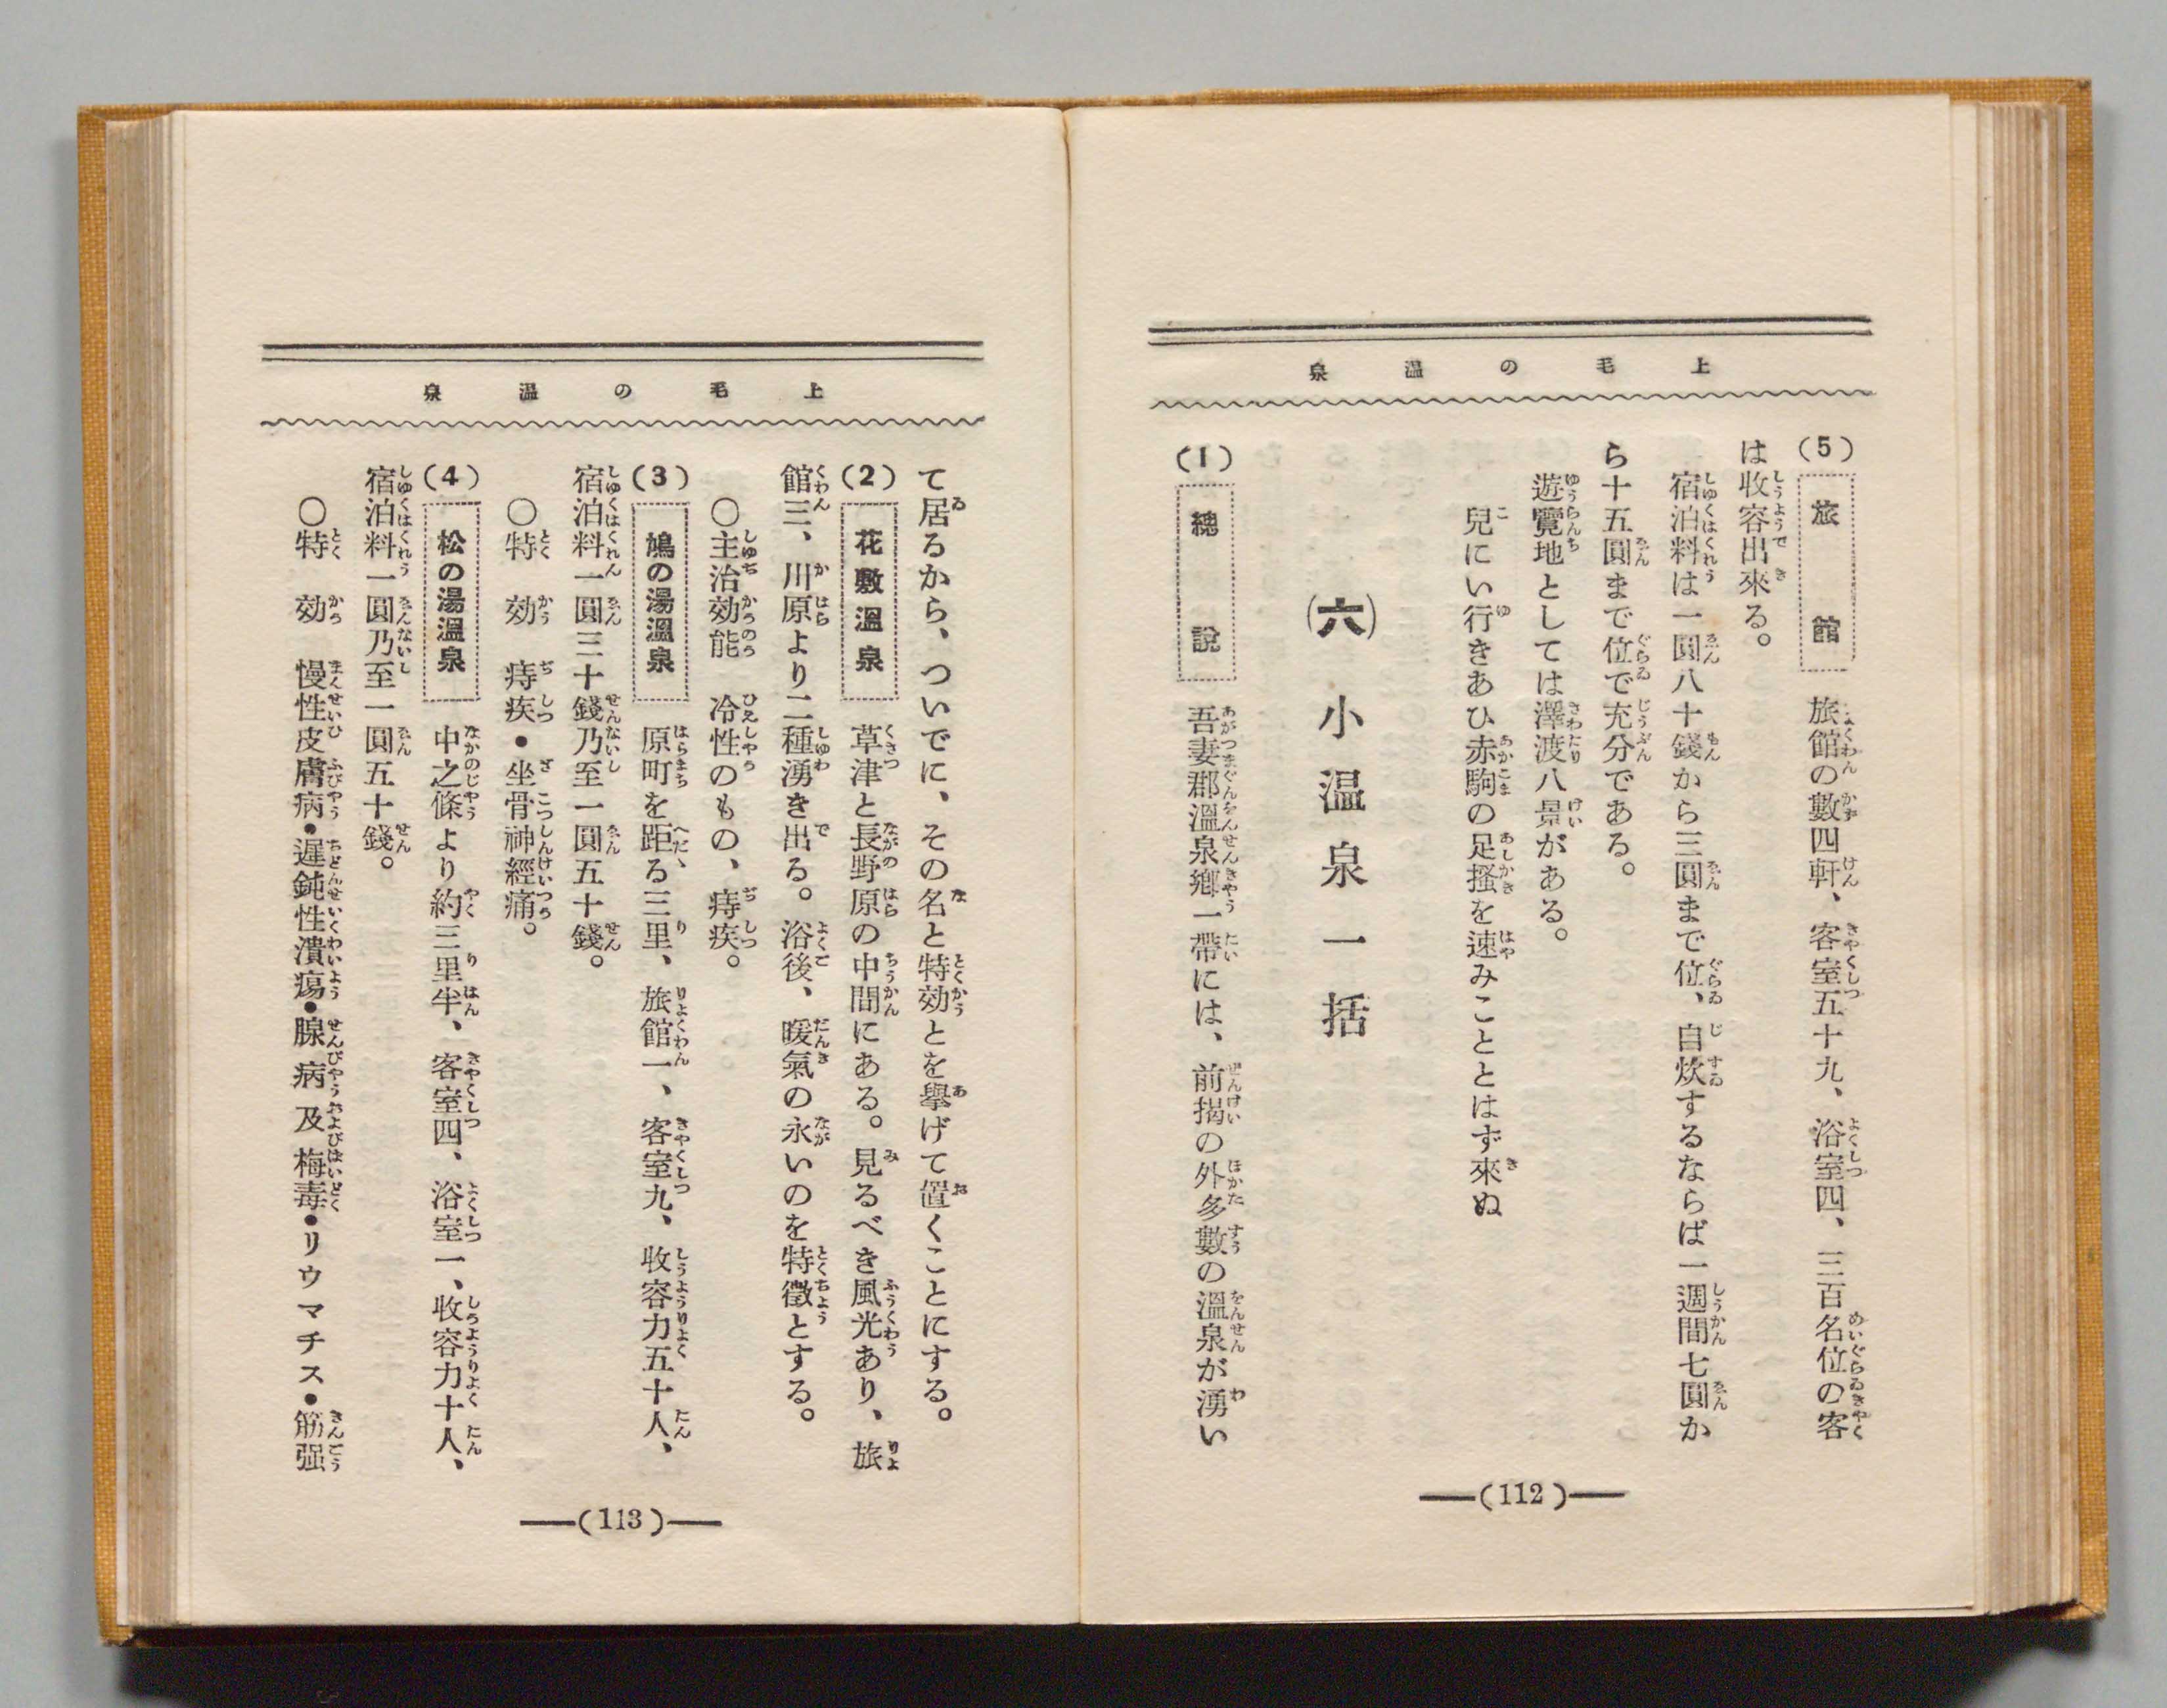 上毛の温泉
(5) 旅館 旅館の數四軒、客室五十九、浴室四、三百名位の客
は收容出來る。
宿泊料は一圓八十錢から三圓まで位、自炊するならば一週間七圓か
ら十五圓まで位で充分である。
遊覽地としては澤渡八景がある。
兒にい行きあひ赤駒の足掻を速みこととはず來ぬ
(六) 小温泉一括
(1) 總說 吾妻郡溫泉鄕一帶には、前揭の外多數の溫泉が湧い
―(112)―
上毛の温泉
て居るから、ついでに、その名と特効とを擧げて置くことにする。
(2) 花敷温泉 草津と長野原の中間にある。見るべき風光あり、旅
館三、川原より二種湧き出る。浴後、暖氣の永いのを特徵とする。
○主治効能 冷性のもの、痔疾。
(3) 鳩の湯温泉 原町を距る三里、旅館一、客室九、收容力五十人、
宿泊料一圓三十錢乃至一圓五十錢。
○特効 痔疾・坐骨神經痛。
(4) 松の湯温泉 中之條より約三里半、客室四、浴室一、收容力十人、
宿泊料一圓乃至一圓五十錢。
○特効 慢性皮膚病・遲鈍性潰瘍・腺病及梅毒・リウマチス・筋强
―(113)―